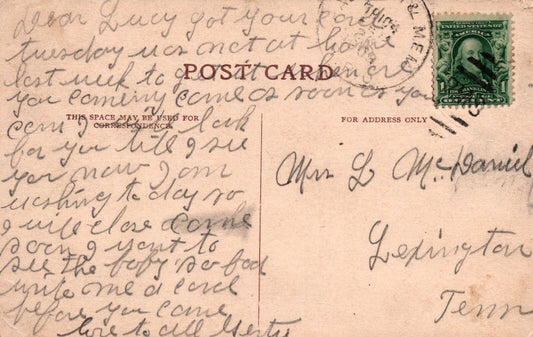 Dear Lucy got your card
tuesday was not at home
last week to get it when are
you coming come as soon as you
can I will look
for you till I see
you now I am
washing to day so
I will close come
soon I want to
see the baby so bad
write me a card
before you come
love to all Gerty
POST CARD
THIS SPACE MAY BE USED FOR
CORRESPONDENCE
FOR ADDRESS ONLY
& MEM
1
FRANKLIN
Mrs L McDaniel
Lexington
Tenn